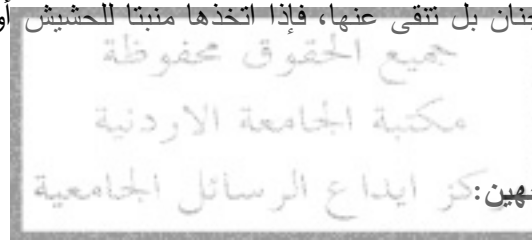 ـنان بل تنقى عنها، فإذا اتخذها منبتا للحشيش أو
جميع الحقوق محفوظة
مكتبة الجامعة الاردنية
مركز ايداع الرسائل الجامعية
ـهين: